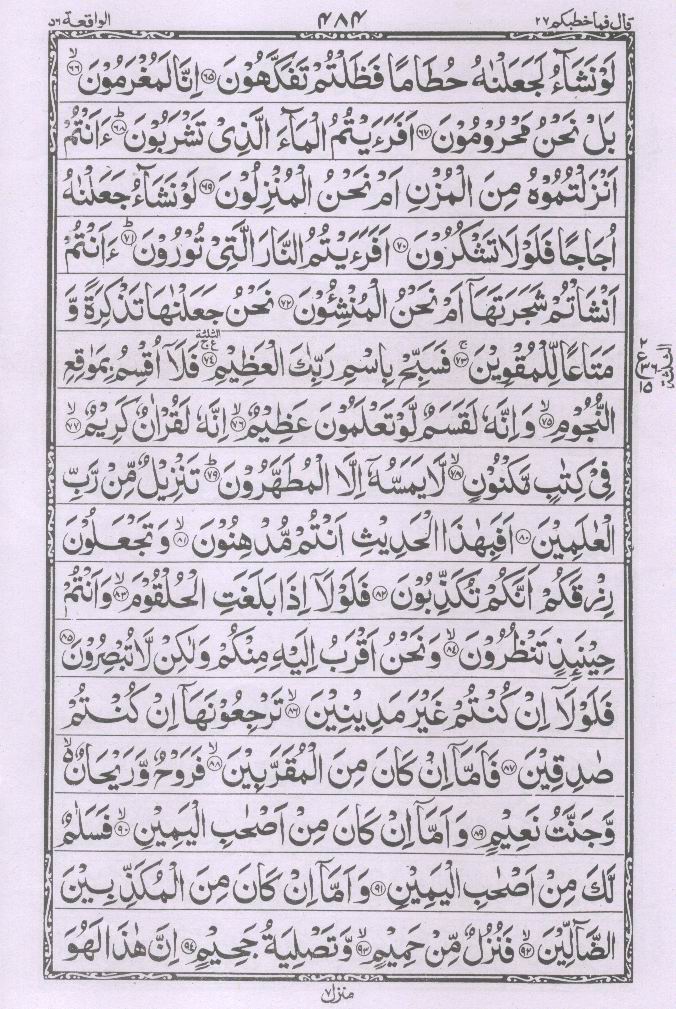 قال فما خطبكم ٢٧ ٤٨٤ الواقعة ٥٦
لَوْ نَشَآءُ لَجَعَلْنٰهُ حُطَامًا فَظَلْتُمْ تَفَكَّهُوْنَ ﴿٦٥﴾ اِنَّا لَمُغْرَمُوْنَ ۙ﴿٦٦﴾
بَلْ نَحْنُ مَحْرُوْمُوْنَ ﴿٦٧﴾ اَفَرَءَيْتُمُ الْمَآءَ الَّذِىْ تَشْرَبُوْنَ ؕ﴿٦٨﴾ ءَاَنْتُمْ
اَنْزَلْتُمُوْهُ مِنَ الْمُزْنِ اَمْ نَحْنُ الْمُنْزِلُوْنَ ﴿٦٩﴾ لَوْ نَشَآءُ جَعَلْنٰهُ
اُجَاجًا فَلَوْلَا تَشْكُرُوْنَ ﴿٧٠﴾ اَفَرَءَيْتُمُ النَّارَ الَّتِىْ تُوْرُوْنَ ؕ﴿٧١﴾ ءَاَنْتُمْ
اَنْشَاْتُمْ شَجَرَتَهَآ اَمْ نَحْنُ الْمُنْشِئُوْنَ ﴿٧٢﴾ نَحْنُ جَعَلْنٰهَا تَذْكِرَةً وَّ
مَتَاعًا لِّلْمُقْوِيْنَ ۚ﴿٧٣﴾ فَسَبِّحْ بِاسْمِ رَبِّكَ الْعَظِيْمِ ﴿٧٤﴾ فَلَآ اُقْسِمُ بِمَوٰقِعِ
النُّجُوْمِ ۙ﴿٧٥﴾ وَاِنَّهٗ لَقَسَمٌ لَّوْ تَعْلَمُوْنَ عَظِيْمٌ ۙ﴿٧٦﴾ اِنَّهٗ لَقُرْاٰنٌ كَرِيْمٌ ۙ﴿٧٧﴾
فِىْ كِتٰبٍ مَّكْنُوْنٍ ۙ﴿٧٨﴾ لَّا يَمَسُّهٗٓ اِلَّا الْمُطَهَّرُوْنَ ؕ﴿٧٩﴾ تَنْزِيْلٌ مِّنْ رَّبِّ
الْعٰلَمِيْنَ ﴿٨٠﴾ اَفَبِهٰذَا الْحَدِيْثِ اَنْتُمْ مُّدْهِنُوْنَ ۙ﴿٨١﴾ وَتَجْعَلُوْنَ
رِزْقَكُمْ اَنَّكُمْ تُكَذِّبُوْنَ ﴿٨٢﴾ فَلَوْلَآ اِذَا بَلَغَتِ الْحُلْقُوْمَ ۙ﴿٨٣﴾ وَاَنْتُمْ
حِيْنَئِذٍ تَنْظُرُوْنَ ۙ﴿٨٤﴾ وَنَحْنُ اَقْرَبُ اِلَيْهِ مِنْكُمْ وَلٰكِنْ لَّا تُبْصِرُوْنَ ﴿٨٥﴾
فَلَوْلَآ اِنْ كُنْتُمْ غَيْرَ مَدِيْنِيْنَ ۙ﴿٨٦﴾ تَرْجِعُوْنَهَآ اِنْ كُنْتُمْ
صٰدِقِيْنَ ﴿٨٧﴾ فَاَمَّآ اِنْ كَانَ مِنَ الْمُقَرَّبِيْنَ ۙ﴿٨٨﴾ فَرَوْحٌ وَّرَيْحَانٌ ۙ
وَّجَنَّتُ نَعِيْمٍ ﴿٨٩﴾ وَاَمَّآ اِنْ كَانَ مِنْ اَصْحٰبِ الْيَمِيْنِ ۙ﴿٩٠﴾ فَسَلٰمٌ
لَّكَ مِنْ اَصْحٰبِ الْيَمِيْنِ ﴿٩١﴾ وَاَمَّآ اِنْ كَانَ مِنَ الْمُكَذِّبِيْنَ
الضَّآلِّيْنَ ۙ﴿٩٢﴾ فَنُزُلٌ مِّنْ حَمِيْمٍ ۙ﴿٩٣﴾ وَّتَصْلِيَةُ جَحِيْمٍ ﴿٩٤﴾ اِنَّ هٰذَا لَهُوَ
منزل ٧